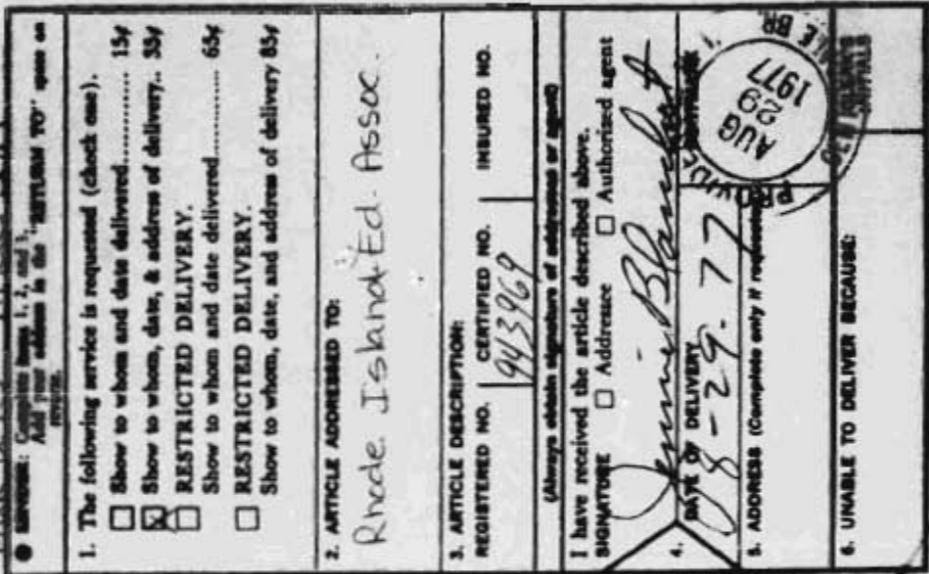 ● SENDER: Complete items 1, 2, and 3.
Add your address in the "RETURN TO" space on
reverse.
1. The following service is requested (check one).
Show to whom and date delivered............ 15¢
Show to whom, date, & address of delivery.. 35¢
RESTRICTED DELIVERY.
Show to whom and date delivered............ 65¢
RESTRICTED DELIVERY.
Show to whom, date, and address of delivery 85¢
2. ARTICLE ADDRESSED TO:
Rhode Island Ed. Assoc.
3. ARTICLE DESCRIPTION:
REGISTERED NO. CERTIFIED NO. INSURED NO.
943969
(Always obtain signature of addressee or agent)
I have received the article described above.
SIGNATURE Addressee Authorized agent
4.
DATE OF DELIVERY POSTMARK
8-29-77
AUG
29
1977
5. ADDRESS (Complete only if requested)
6. UNABLE TO DELIVER BECAUSE: